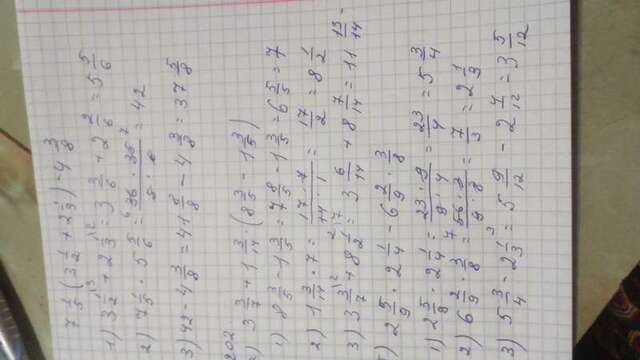 7 1/5 · (3 1/2 + 2 1/3) - 4 3/8
1) 3 1/2 + 2 1/3 = 3 3/6 + 2 2/6 = 5 5/6
2) 7 1/5 · 5 5/6 = 36 · 35 / 5 · 6 = 42
3) 42 - 4 3/8 = 41 8/8 - 4 3/8 = 37 5/8
202
3 3/7 + 1 3/14 · (8 3/5 - 1 3/5)
1) 8 3/5 - 1 3/5 = 7 8/5 - 1 3/5 = 6 5/5 = 7
2) 1 3/14 · 7 = 17 · 7 / 14 · 1 = 17/2 = 8 1/2
3) 3 3/7 + 8 1/2 = 3 6/14 + 8 7/14 = 11 13/14
2 5/9 · 2 1/4 - 6 2/9 · 3/8
1) 2 5/9 · 2 1/4 = 23 · 9 / 9 · 4 = 23/4 = 5 3/4
2) 6 2/9 · 3/8 = 56 · 3 / 9 · 8 = 7/3 = 2 1/3
3) 5 3/4 - 2 1/3 = 5 9/12 - 2 4/12 = 3 5/12